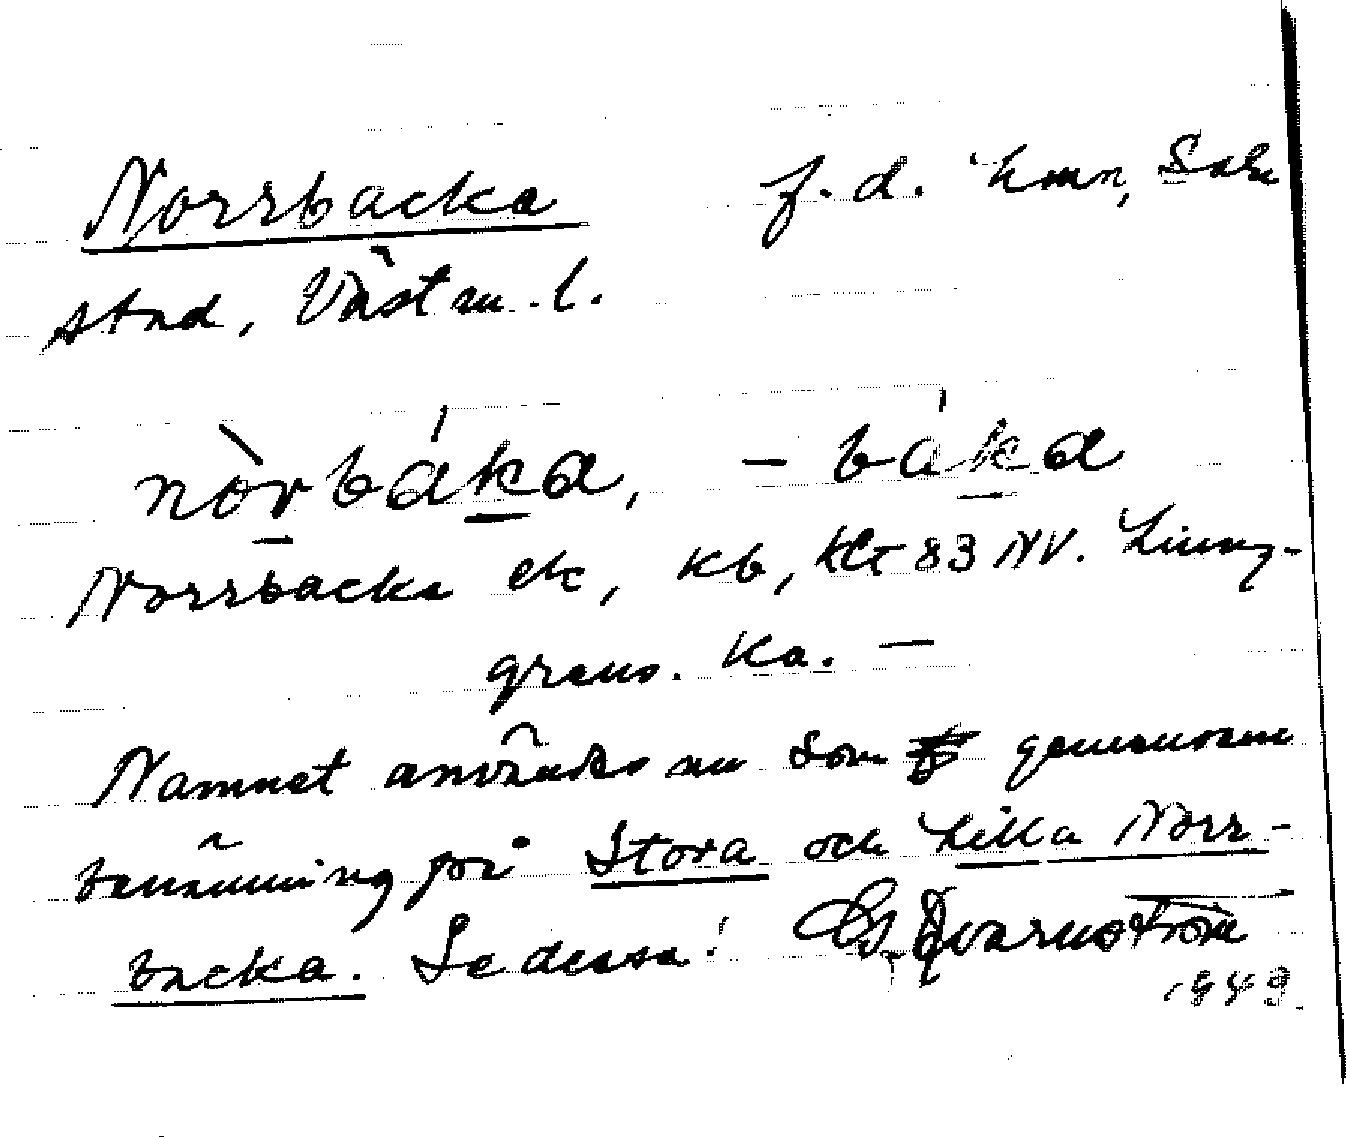 Norrbacka f.d. hmn, Sala
stad, Västm. l.
nòrbáka, – báka
Norrbacka ek, kb, klt 83 NV. Ljung-
grens. Ka. –
Namnet användes nu som gemensam
benämning på Stora och Lilla Norr-
backa. Se dessa! G. Qvarnström
1949